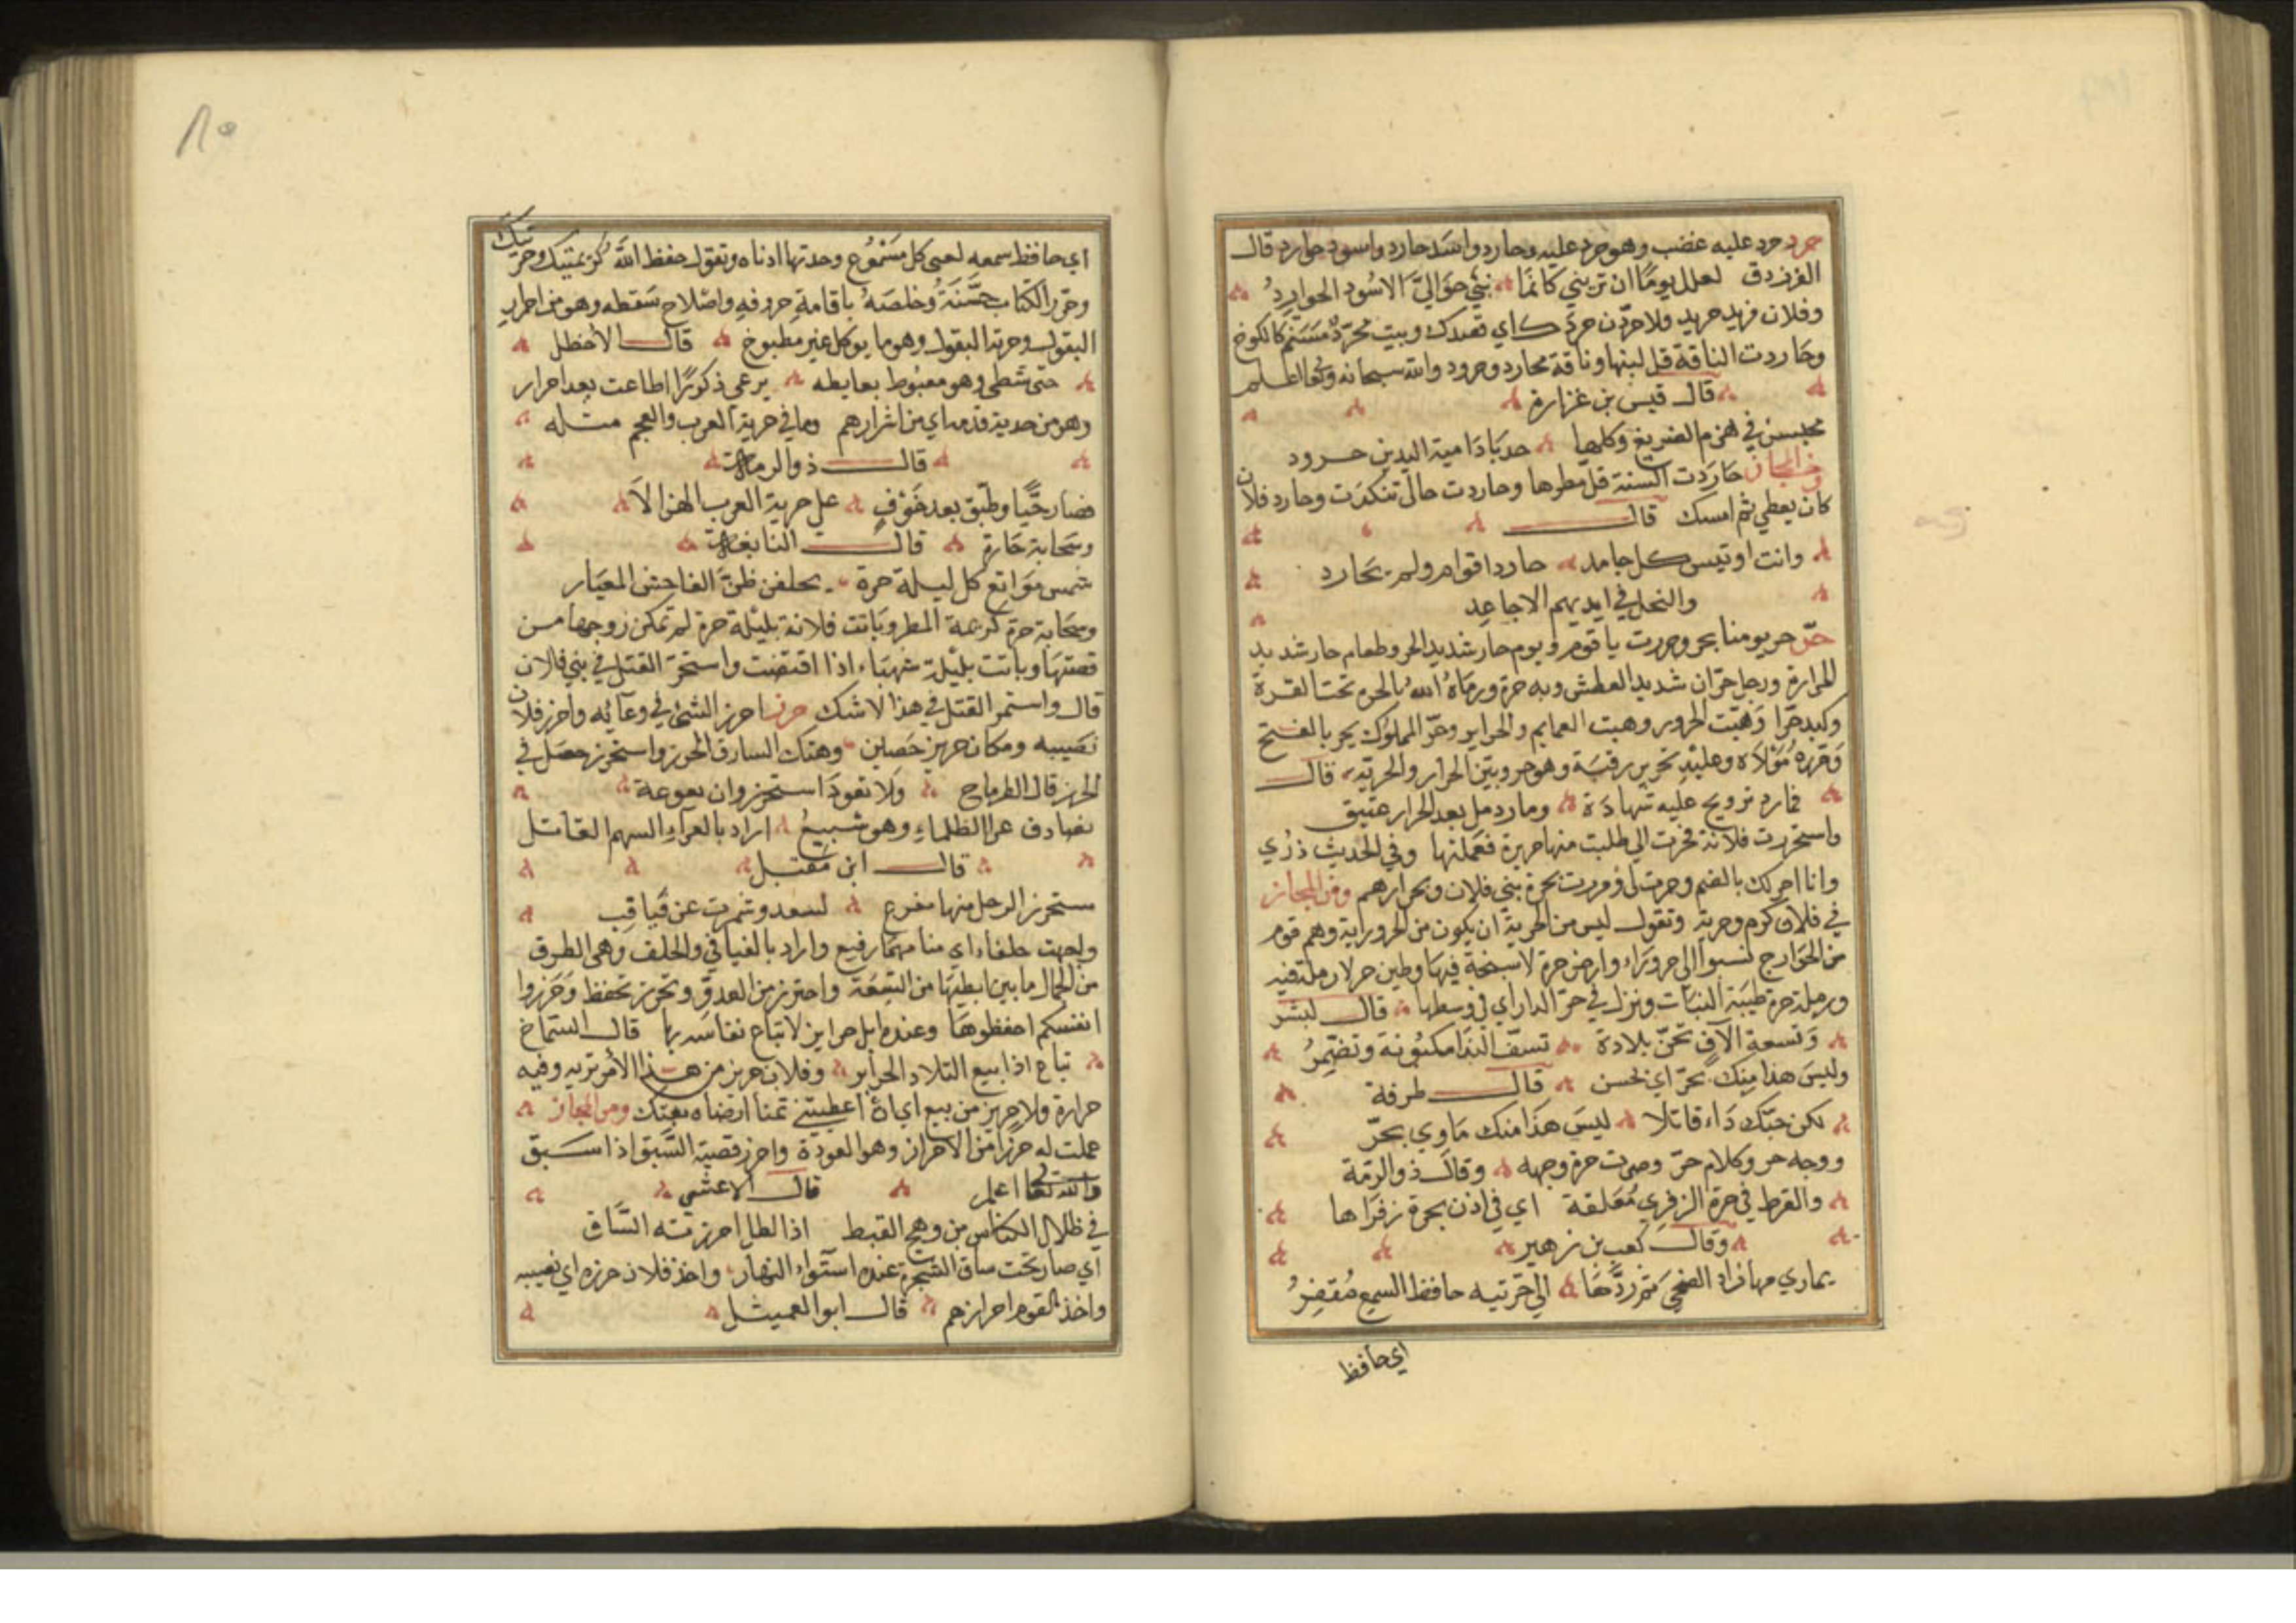 حرد حرد عليه غضب وهو حرد عليه وحارد واسد حارد واسود حوارد قال
الفرزدق لعلك يومًا ان تريني كانما بني حواليَّ الاسُود الحوارِدُ
وفلان فريد حريد ولاحردّن حردك اي قصدك وبيت محرّد مسنم كالكوخ
وحاردت الناقة قل لبنها وناقة محارد وحرود والله سبحانه وتعا اعلم
قال قيس بن غزارة
محبسن في هزم الضريع وكلها حدبا دامية اليدين حرود
ومن المجاز حارَدت السنة قل مطرها وحاردت حالى تنكدت وحارد فلان
كان يعطي ثم امسك قال
وانت اوتيس كل جامد حارد اقوام ولم يحارد
والنحل في ايديهم الاجاعِدِ
حرّ حر يومنا يحر وحررت يا قوم ويوم حار شديد الحر وطعام حار شديد
المرارة ورجل حرّان شديد العطش وبه حرة ورماهُ اللهُ بالحرة تحت القرة
وكبد حرّا وَهبّت الحرور وهبت العمايم والحراير وحرّ المملوك يحر بالفتح
وَحرّره مَوْلاه وعليْه تحرير رقبة وهو حر وبيّن الحرار والحرية قال
فما رد تزويج عليه شهادة وما رد من بعد الحرار عتيق
واستحررت فلانة فحرت الي طلبت منها حريرة فعملتها وفي الحديث ذرّي
وانا احر لك بالضم وحرت لى ومررت بحرة بني فلان وبحرارهم ومن المجاز
في فلان كرم وحرية وتقول ليس من الحرية ان يكون من الحرورايه وهم قوم
من الخوارج نسبوا الى حروراء وارض حرة لا سبخة فيها وطين حر لا رملة فيه
ورملة حرة طيبة النبات ونزل في حرّ الدار اي في وسطها قال بشر
وتسعة الآف بحرّ بلادة تسفّ الندا مكبونة وتضمر
وليسَ هذا منك بحرّ اي بحسن قال طرفة
لكن حبّك دَاء قاتلا ليسَ هَذا منك مَاوي بحرّ
ووجه حر وكلام حرّ وصن حرة وجهه وقال ذو الرمة
والقرط في حرة الزفري مُعَلقة اي في اذن بحرة زفراها
وقال كعب بن زهير
يماري مهاتراد الضحي متمردّها الي حرتيه حافظ السمع مُقفِرُ
اي حافظ
اي حافظ سمعه لعى كل مسْمُوع وحدتها اذناه وتقول حفظ اللّه كريمتيك وحرتيك
وحرّر الكتاب حسّنَهُ وخلصَهُ باقامة حروفه واصْلاح سَقطه وهو من احرار
البقول وحرية البقول وهو ما يوكل غير مطبوخ قال الأخطل
حتى شطى وهو مغبُوط بعايطه يرعى ذكورًا اطاعت بعد احرار
وهو من حدية قومه اي من اشرارهم وما في حرية العرب والعجم مثله
قال ذو الرمة
فصار حيًّا وطبّق بعد خوْفٍ على حرية العرب الهزالا
وسَحَابة حَارة قال النابغة
شمس موَانع كل ليلة حرة يخلفن ظنّ الفاحش المغيار
وسحابة حرة كريمة المطر وبَاتت فلانة بليْلة حرة لم تمكن زوجها من
قضتها وباتت بليْلة شهبَاء اذا اقتضت واستحرّ القتل في بني فلان
قال واستحر القتل في هذا لا شك حرز احرز الشئ في وعَآئه واحرز فلان
نصيبه ومكان حريز حَصلين وهتك السارق الحرز واستحرز حصَل في
الحرز قال الطرماح ولا تعودَ استحرز وان بعوعة
تصادف عرا الظلماءِ وهو شبيعُ اراد بالعراءِ السهم القاتل
قال ابن مقبل
مستحرز الرحل منها مفرع لسعد وشمرت عن فيافِ
ولجهت حلفاء اي منا مهمار فيع واراد بالفيافي والخلف وهي الطرق
من الجمال ما بين ابطيْها من السّعَة واحترز من العدوّ وتحرّز تحفظ وَحرزوا
انفسكم احفظوها وعنده ابل حرايز لا تباع نفاسة بها قال الشماخ
تباع اذا بيع التلاد الحرايز وفلان حريز من هذا الأمر تريه وفيه
حرازة ولا حريز من بيع اي ان اعطيتني ثمنا ارضاه بعتك ومن المجاز
عملت له حرزًا من الاحراز وهو العوذة واحرز قصبة السَّبق اذا سبق
والله تعا اعلم قال الاعشي
في ظلال الكناس من وهج القيظ اذا الظل احرزته السّاق
اي صار تحت ساق الشجرة عنده استوآء النهار واخذ فلان حرزه اي نصيبه
واخذ القوم احرازهم قال ابو العميثل